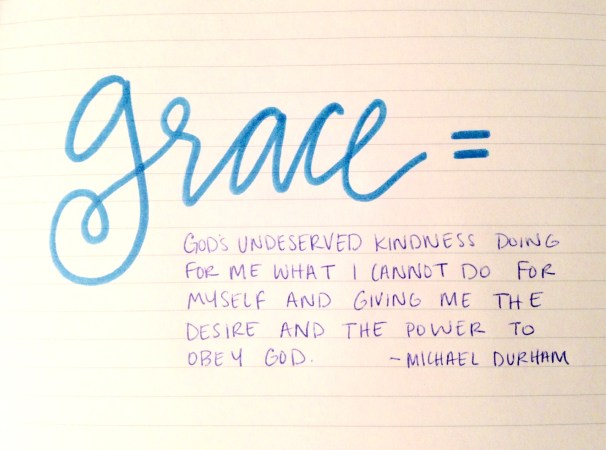 grace =
GOD'S UNDESERVED KINDNESS DOING
FOR ME WHAT I CANNOT DO FOR
MYSELF AND GIVING ME THE
DESIRE AND THE POWER TO
OBEY GOD. ~MICHAEL DURHAM